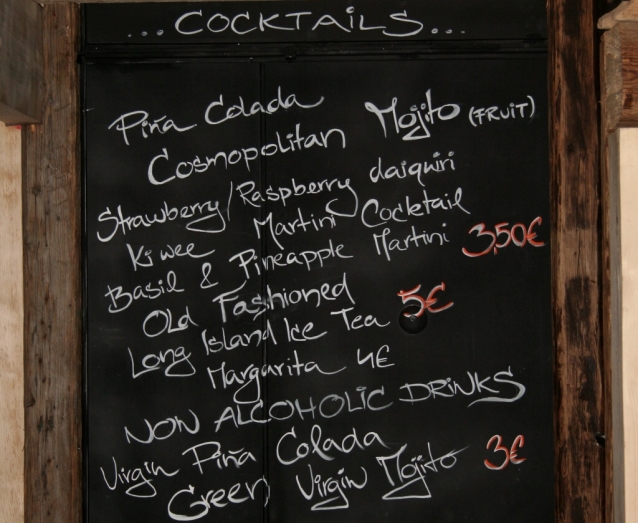 ...COCKTAILS...
Piña Colada
Cosmopolitan Mojito (FRUIT)
Strawberry/Raspberry daiquiri
Kiwee Martini Cocktail
Basil & Pineapple Martini 3,50€
Old Fashioned
Long Island Ice Tea 5€
Margarita 4€
NON ALCOHOLIC DRINKS
Virgin Piña Colada
Green Virgin Mojito 3€